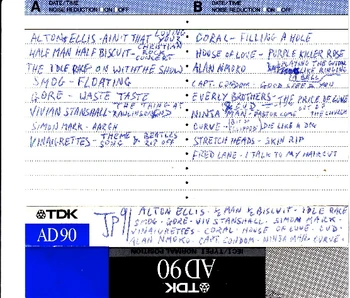 A DATE/TIME
NOISE REDUCTION ON OFF
B DATE/TIME
NOISE REDUCTION ON OFF
ALTON ELLIS - AIN'T THAT YOUR
HALF MAN HALF BISCUIT - CHRISTIAN ROCK CONCERT
THE IDLE RACE - ON WITH THE SHOW
SMOG - FLOATING
GORE - WASTE TASTE
VIVIAN STANSHALL - THE THING AT RAWLINSON END
SIMON MARK - AARGH
VINAIGRETTES - THEME SONG & BEATLES RIP OFF
CORAL - FILLING A HOLE
HOUSE OF LOVE - PURPLE KILLER ROSE
ALAN NMOKO - LIKE RINGING A BELL
CAPT. CONDOM - GOOD
EVERLY BROTHERS - THE PRICE OF LOVE
NINJA MAN
CURVE - DIE LIKE A DOG
STRETCH HEADS - SKIN RIP
FRED LANE - I TALK TO MY HAIRCUT
TDK
AD90
JP91
ALTON ELLIS - ½ MAN ½ BISCUIT - IDLE RACE
SMOG - GORE - VIV STANSHALL - SIMON MARK -
VINAIGRETTES - CORAL - HOUSE OF LOVE -
ALAN NMOKO - CAPT CONDOM - NINJA MAN - CURVE -
TDK
AD90